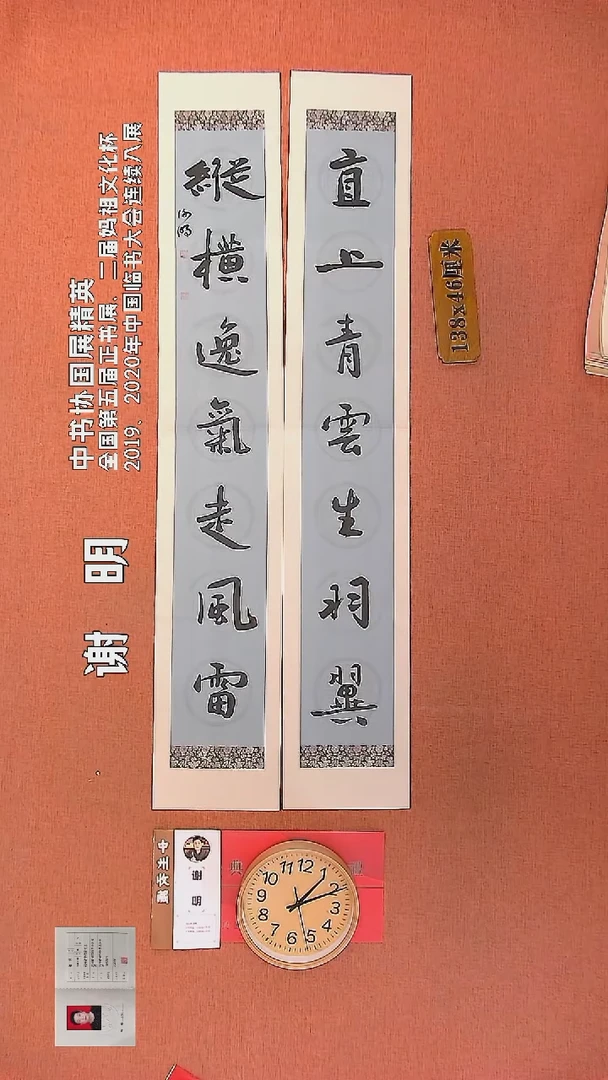 直上青雲生羽翼
縱橫逸氣走風雷
谢明
中书协国展精英
全国第五届正书展、二届妈祖文化杯
2019、2020年中国临书大会连续入展
138x46厘米
谢明
11 12 1
10 2
9 3
8 4
7 6 5